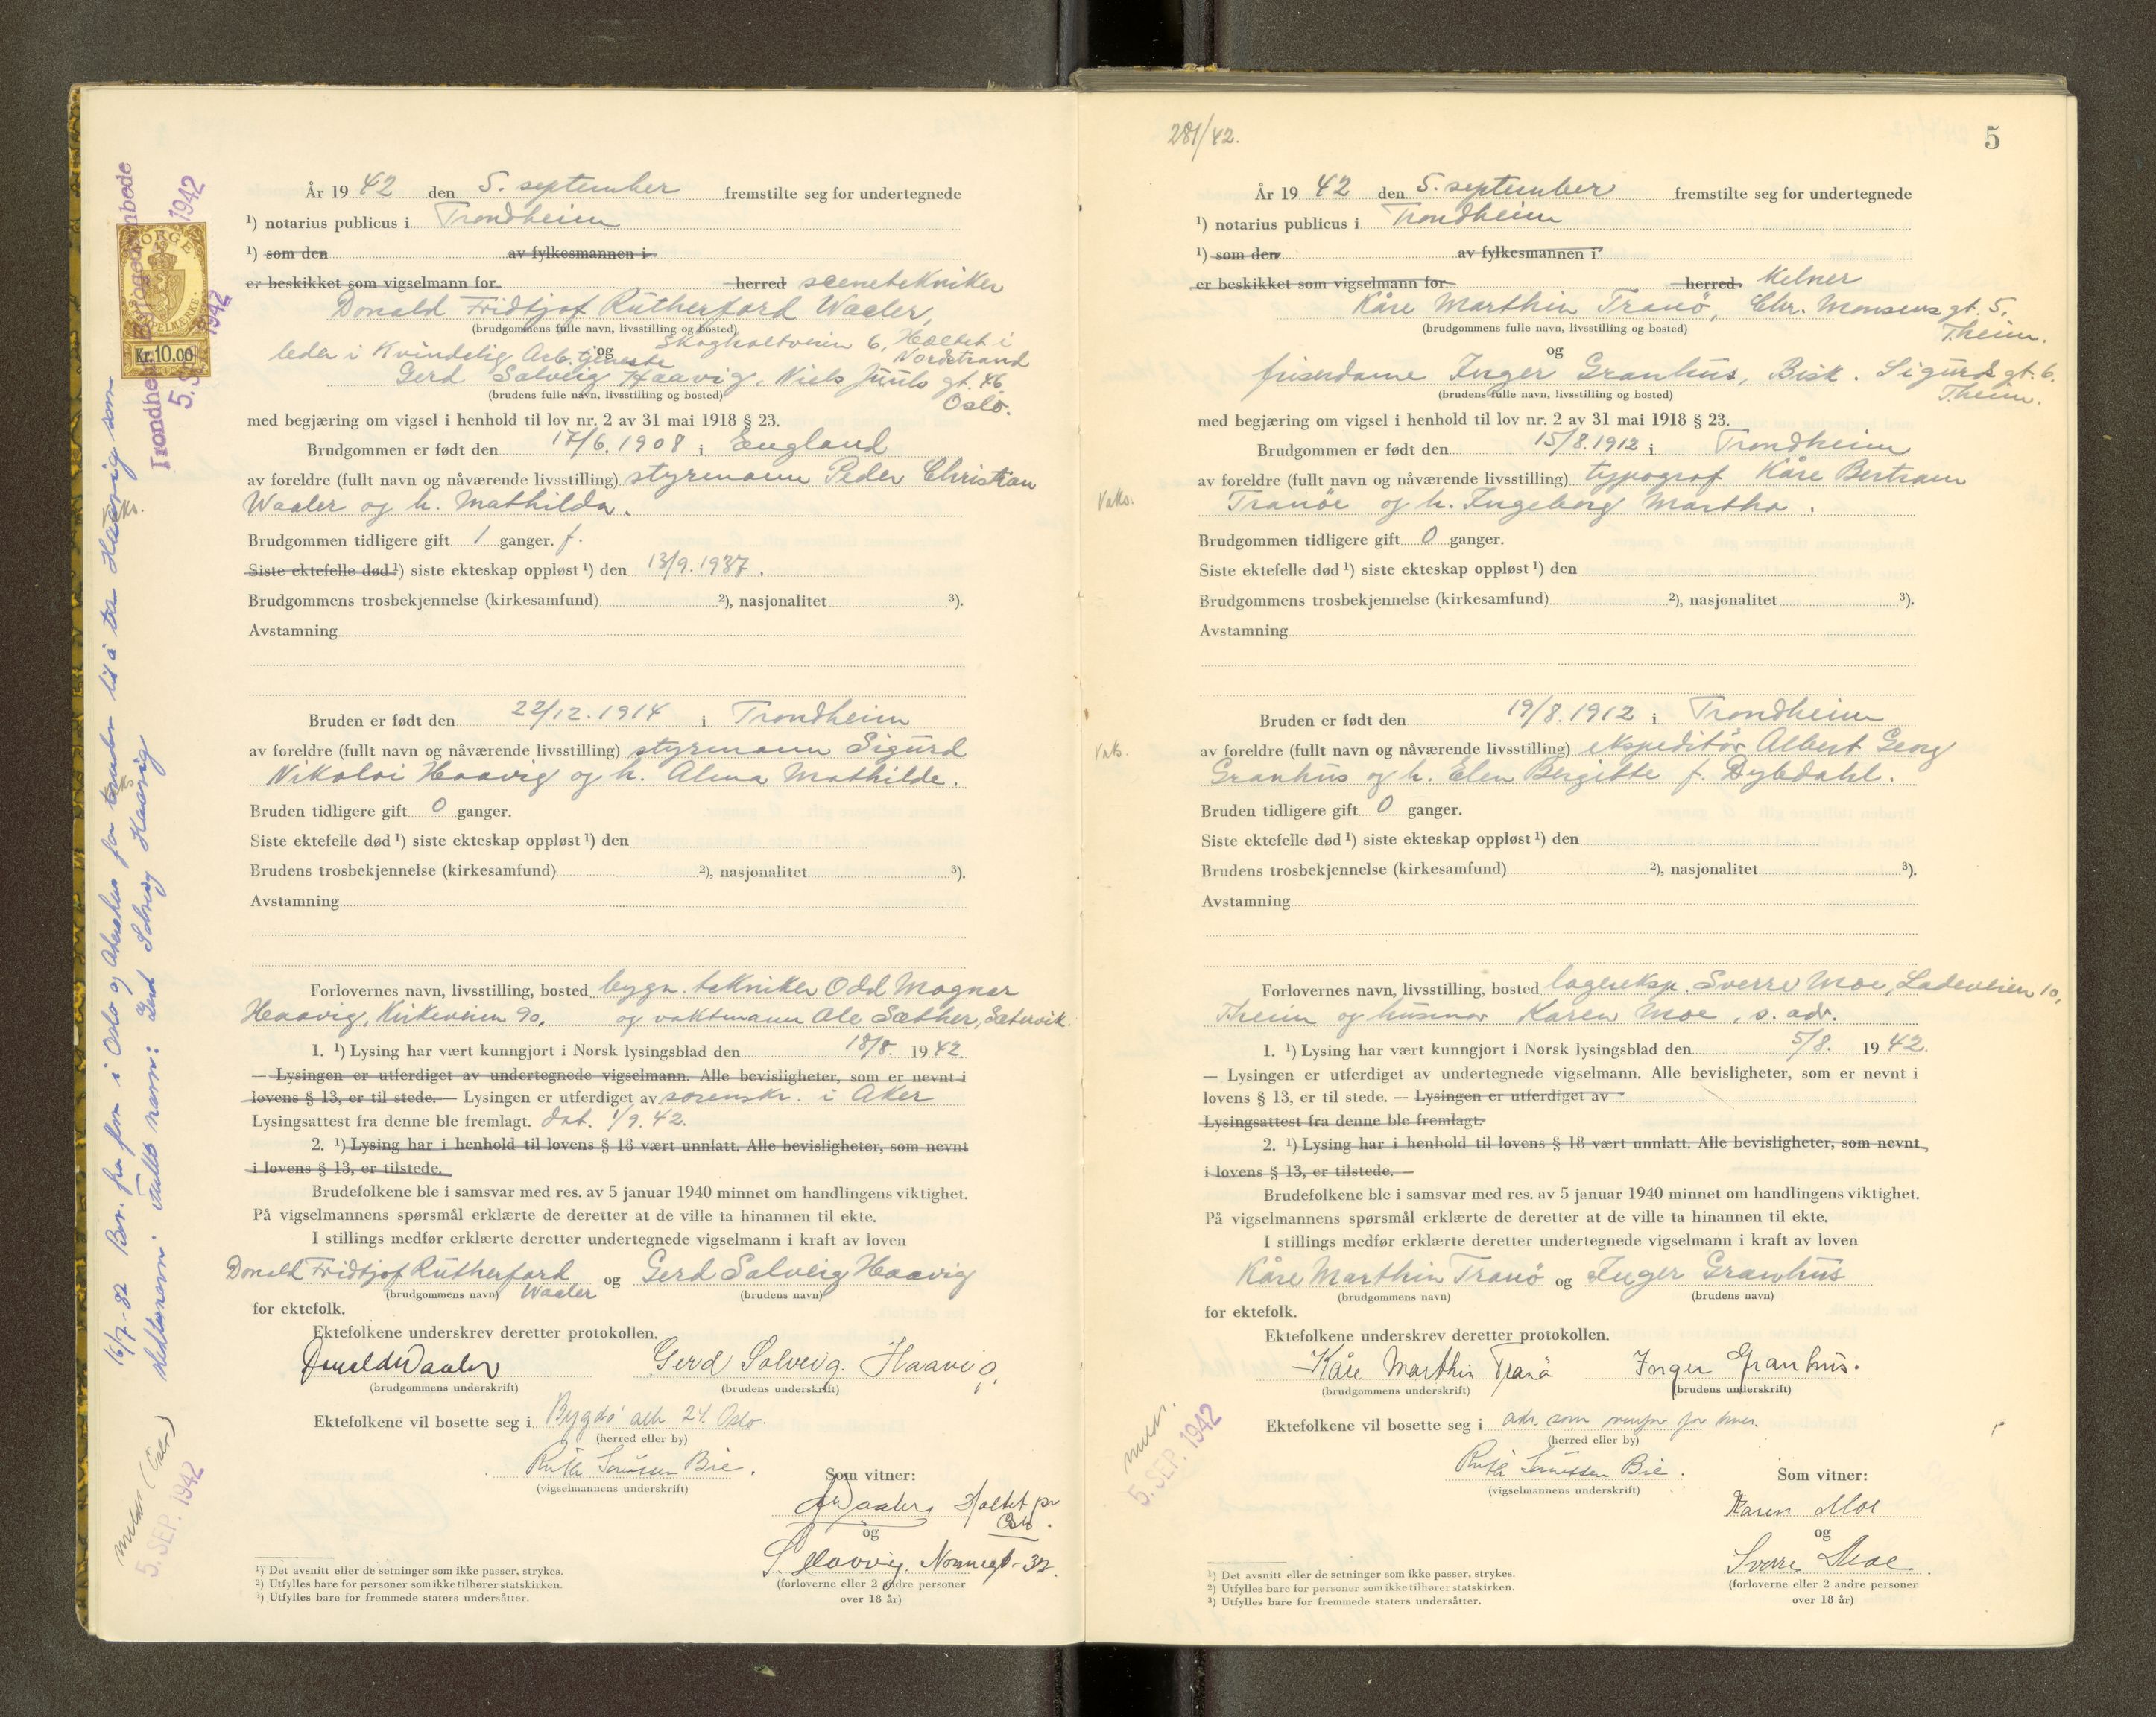 År 19 42 den 5. september fremstilte seg for undertegnede
¹) notarius publicus i Trondheim
¹) som den av fylkesmannen i
er beskikket som vigselmann for herred scenetekniker
Donald Fridtjof Rutherford Waaler,
(brudgommens fulle navn, livsstilling og bosted)
Skogholtveien 6, Holtet i Nordstrand
og
leder i Kvindelig Arb.tjeneste
Gerd Solveig Haavig, Niels Juuls gt. 46
Oslo.
(brudens fulle navn, livsstilling og bosted)
med begjæring om vigsel i henhold til lov nr. 2 av 31 mai 1918 § 23.
Brudgommen er født den 17/6.1908 i England
av foreldre (fullt navn og nåværende livsstilling) styrmann Peder Christian
Waaler og h. Mathilda.
Brudgommen tidligere gift 1 ganger. f.
Siste ektefelle død ¹) siste ekteskap oppløst ¹) den 13/9.1937.
Brudgommens trosbekjennelse (kirkesamfund) ²), nasjonalitet ³).
Avstamning
Bruden er født den 22/12.1914 i Trondheim
av foreldre (fullt navn og nåværende livsstilling) styrmann Sigurd
Nikolai Haavig og h. Alma Mathilde.
Bruden tidligere gift 0 ganger.
Siste ektefelle død ¹) siste ekteskap oppløst ¹) den
Brudens trosbekjennelse (kirkesamfund) ²), nasjonalitet ³).
Avstamning
Forlovernes navn, livsstilling, bosted bygn. tekniker Odd Magnar
Haavig, Kirkeveien 90. og vaktmann Ole Sæther, Sætervik.
1. ¹) Lysing har vært kunngjort i Norsk lysingsblad den 18/8. 19 42.
— Lysingen er utferdiget av undertegnede vigselmann. Alle bevisligheter, som er nevnt i
lovens § 13, er til stede. — Lysingen er utferdiget av sorenskr. i Aker
Lysingsattest fra denne ble fremlagt. dat. 1/9.42.
2. ¹) Lysing har i henhold til lovens § 18 vært unnlatt. Alle bevisligheter, som nevnt
i lovens § 13, er tilstede.
Brudefolkene ble i samsvar med res. av 5 januar 1940 minnet om handlingens viktighet.
På vigselmannens spørsmål erklærte de deretter at de ville ta hinannen til ekte.
I stillings medfør erklærte deretter undertegnede vigselmann i kraft av loven
Donald Fridtjof Rutherford Waaler og Gerd Solveig Haavig
(brudgommens navn) (brudens navn)
for ektefolk.
Ektefolkene underskrev deretter protokollen.
Donald Waaler Gerd Solveig Haavig.
(brudgommens underskrift) (brudens underskrift)
Ektefolkene vil bosette seg i Bygdö alle 24. Oslo.
(herred eller by)
Ruth Sonussen Bie.
(vigselmannens underskrift)
Som vitner:
Waaler, Holtet pr
Oslo.
og
S. Haavig. Nonnegt-32.
(forloverne eller 2 andre personer
over 18 år)
¹) Det avsnitt eller de setninger som ikke passer, strykes.
²) Utfylles bare for personer som ikke tilhører statskirken.
³) Utfylles bare for fremmede staters undersåtter.
NORGE
STEMPELMERKE
Kr. 10.00
Trondheim Byfogedembede
5. SEP. 1942
16/7-82 Bev. fra flm i Oslo og Akershus for bruden til å ta Haavig som
slektsnavn. Fullt navn: Gerd Solveig Haavig
Vaks.
meldt (Oslo)
5. SEP. 1942
281/42.
5
År 19 42 den 5. september fremstilte seg for undertegnede
¹) notarius publicus i Trondheim
¹) som den av fylkesmannen i
er beskikket som vigselmann for herred Kelner
Kåre Marthin Tranö, Chr. Monsens gt. 5,
T.heim.
(brudgommens fulle navn, livsstilling og bosted)
og
friserdame Inger Granhus, Bisk. Sigurds gt. 6.
T.heim.
(brudens fulle navn, livsstilling og bosted)
med begjæring om vigsel i henhold til lov nr. 2 av 31 mai 1918 § 23.
Brudgommen er født den 15/8.1912 i Trondheim
av foreldre (fullt navn og nåværende livsstilling) typograf Kåre Bertram
Vaks.
Tranöe og h. Ingeborg Martha.
Brudgommen tidligere gift 0 ganger.
Siste ektefelle død ¹) siste ekteskap oppløst ¹) den
Brudgommens trosbekjennelse (kirkesamfund) ²), nasjonalitet ³).
Avstamning
Bruden er født den 19/8.1912 i Trondheim
Vaks.
av foreldre (fullt navn og nåværende livsstilling) ekspeditör Albert Georg
Granhus og h. Elen Bergitte f. Dybdahl.
Bruden tidligere gift 0 ganger.
Siste ektefelle død ¹) siste ekteskap oppløst ¹) den
Brudens trosbekjennelse (kirkesamfund) ²), nasjonalitet ³).
Avstamning
Forlovernes navn, livsstilling, bosted lagereksp. Sverre Moe, Ladeveien 10,
T.heim og husmor Karen Moe, s. adr.
1. ¹) Lysing har vært kunngjort i Norsk lysingsblad den 5/8. 19 42.
— Lysingen er utferdiget av undertegnede vigselmann. Alle bevisligheter, som er nevnt i
lovens § 13, er til stede. — Lysingen er utferdiget av
Lysingsattest fra denne ble fremlagt.
2. ¹) Lysing har i henhold til lovens § 18 vært unnlatt. Alle bevisligheter, som nevnt
i lovens § 13, er tilstede. —
Brudefolkene ble i samsvar med res. av 5 januar 1940 minnet om handlingens viktighet.
På vigselmannens spørsmål erklærte de deretter at de ville ta hinannen til ekte.
I stillings medfør erklærte deretter undertegnede vigselmann i kraft av loven
Kåre Marthin Tranö og Inger Granhus
(brudgommens navn) (brudens navn)
for ektefolk.
Ektefolkene underskrev deretter protokollen.
Kåre Marthin Tranö Inger Granhus.
(brudgommens underskrift) (brudens underskrift)
Ektefolkene vil bosette seg i adr. som ovenfor for hver.
(herred eller by)
Ruth Sonussen Bie.
(vigselmannens underskrift)
Som vitner:
Karen Moe
og
Sverre Moe
(forloverne eller 2 andre personer
over 18 år)
¹) Det avsnitt eller de setninger som ikke passer, strykes.
²) Utfylles bare for personer som ikke tilhører statskirken.
³) Utfylles bare for fremmede staters undersåtter.
5. SEP. 1942